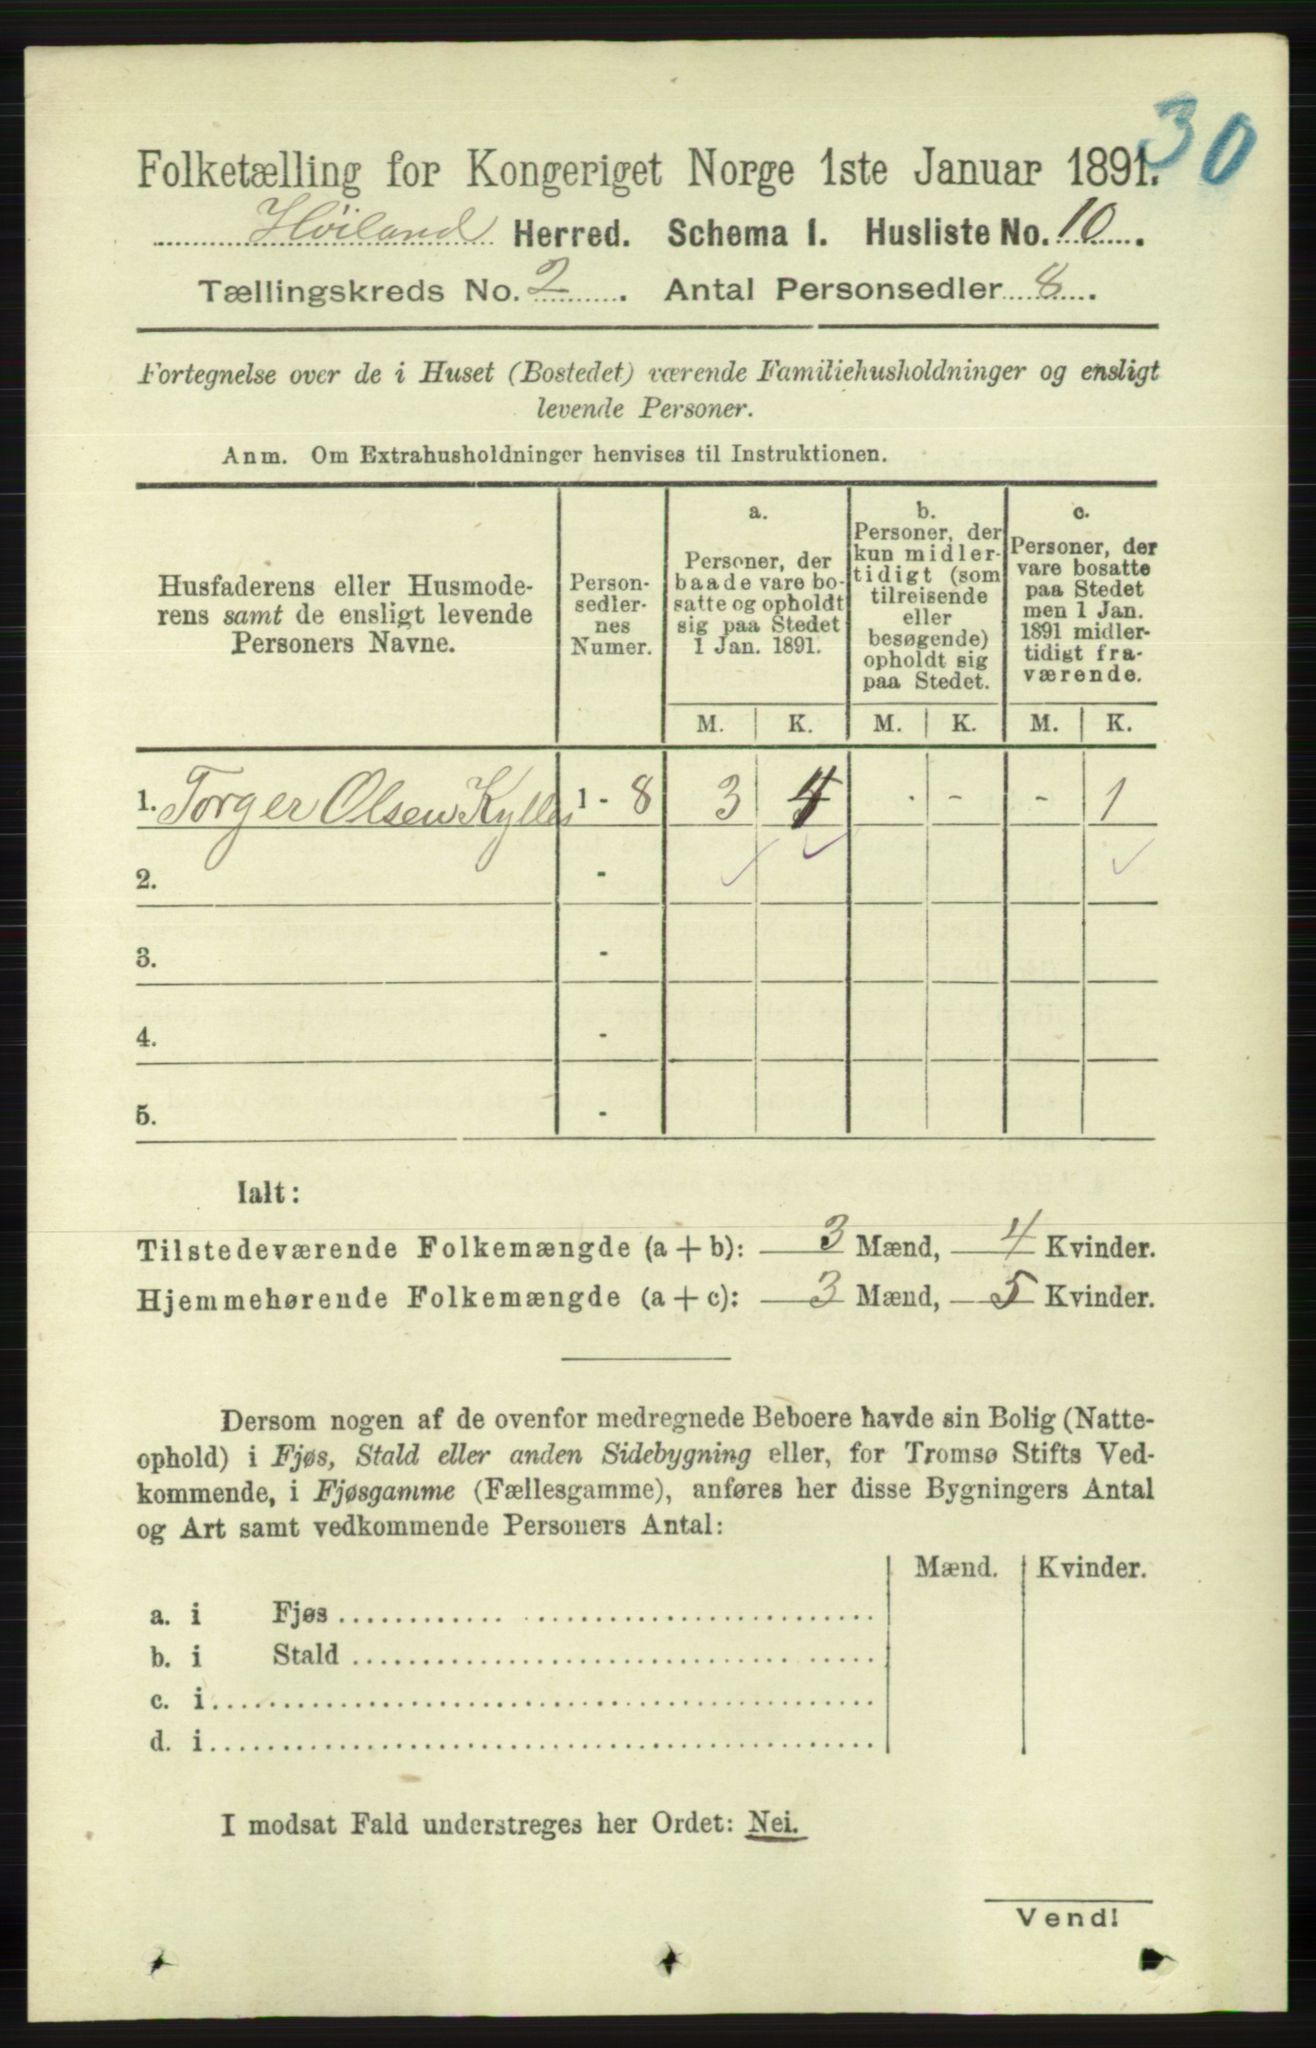 30
Folketælling for Kongeriget Norge 1ste Januar 1891.
Høiland Herred. Schema 1. Husliste No. 10.
Tællingskreds No. 2. Antal Personsedler 8.
Fortegnelse over de i Huset (Bostedet) værende Familiehusholdninger og ensligt
levende Personer.
Anm. Om Extrahusholdninger henvises til Instruktionen.
Husfaderens eller Husmode-
rens samt de ensligt levende
Personers Navne.
Person-
sedler-
nes
Numer.
a.
Personer, der
baade vare bo-
satte og opholdt
sig paa Stedet
1 Jan. 1891.
b.
Personer, der
kun midler-
tidigt (som
tilreisende
eller
besøgende)
opholdt sig
paa Stedet.
c.
Personer, der
vare bosatte
paa Stedet
men 1 Jan.
1891 midler-
tidigt fra-
værende.
M. K. M. K. M. K.
1. Torger Olsen Kylles 1 - 8 3 4 . - - 1
2. -
3. -
4. -
5. -
Ialt:
Tilstedeværende Folkemængde (a + b): 3 Mænd, 4 Kvinder.
Hjemmehørende Folkemængde (a + c): 3 Mænd, 5 Kvinder.
Dersom nogen af de ovenfor medregnede Beboere havde sin Bolig (Natte-
ophold) i Fjøs, Stald eller anden Sidebygning eller, for Tromsø Stifts Ved-
kommende, i Fjøsgamme (Fællesgamme), anføres her disse Bygningers Antal
og Art samt vedkommende Personers Antal:
Mænd. Kvinder.
a. i Fjøs
b. i Stald
c. i
d. i
I modsat Fald understreges her Ordet: Nei.
Vend!